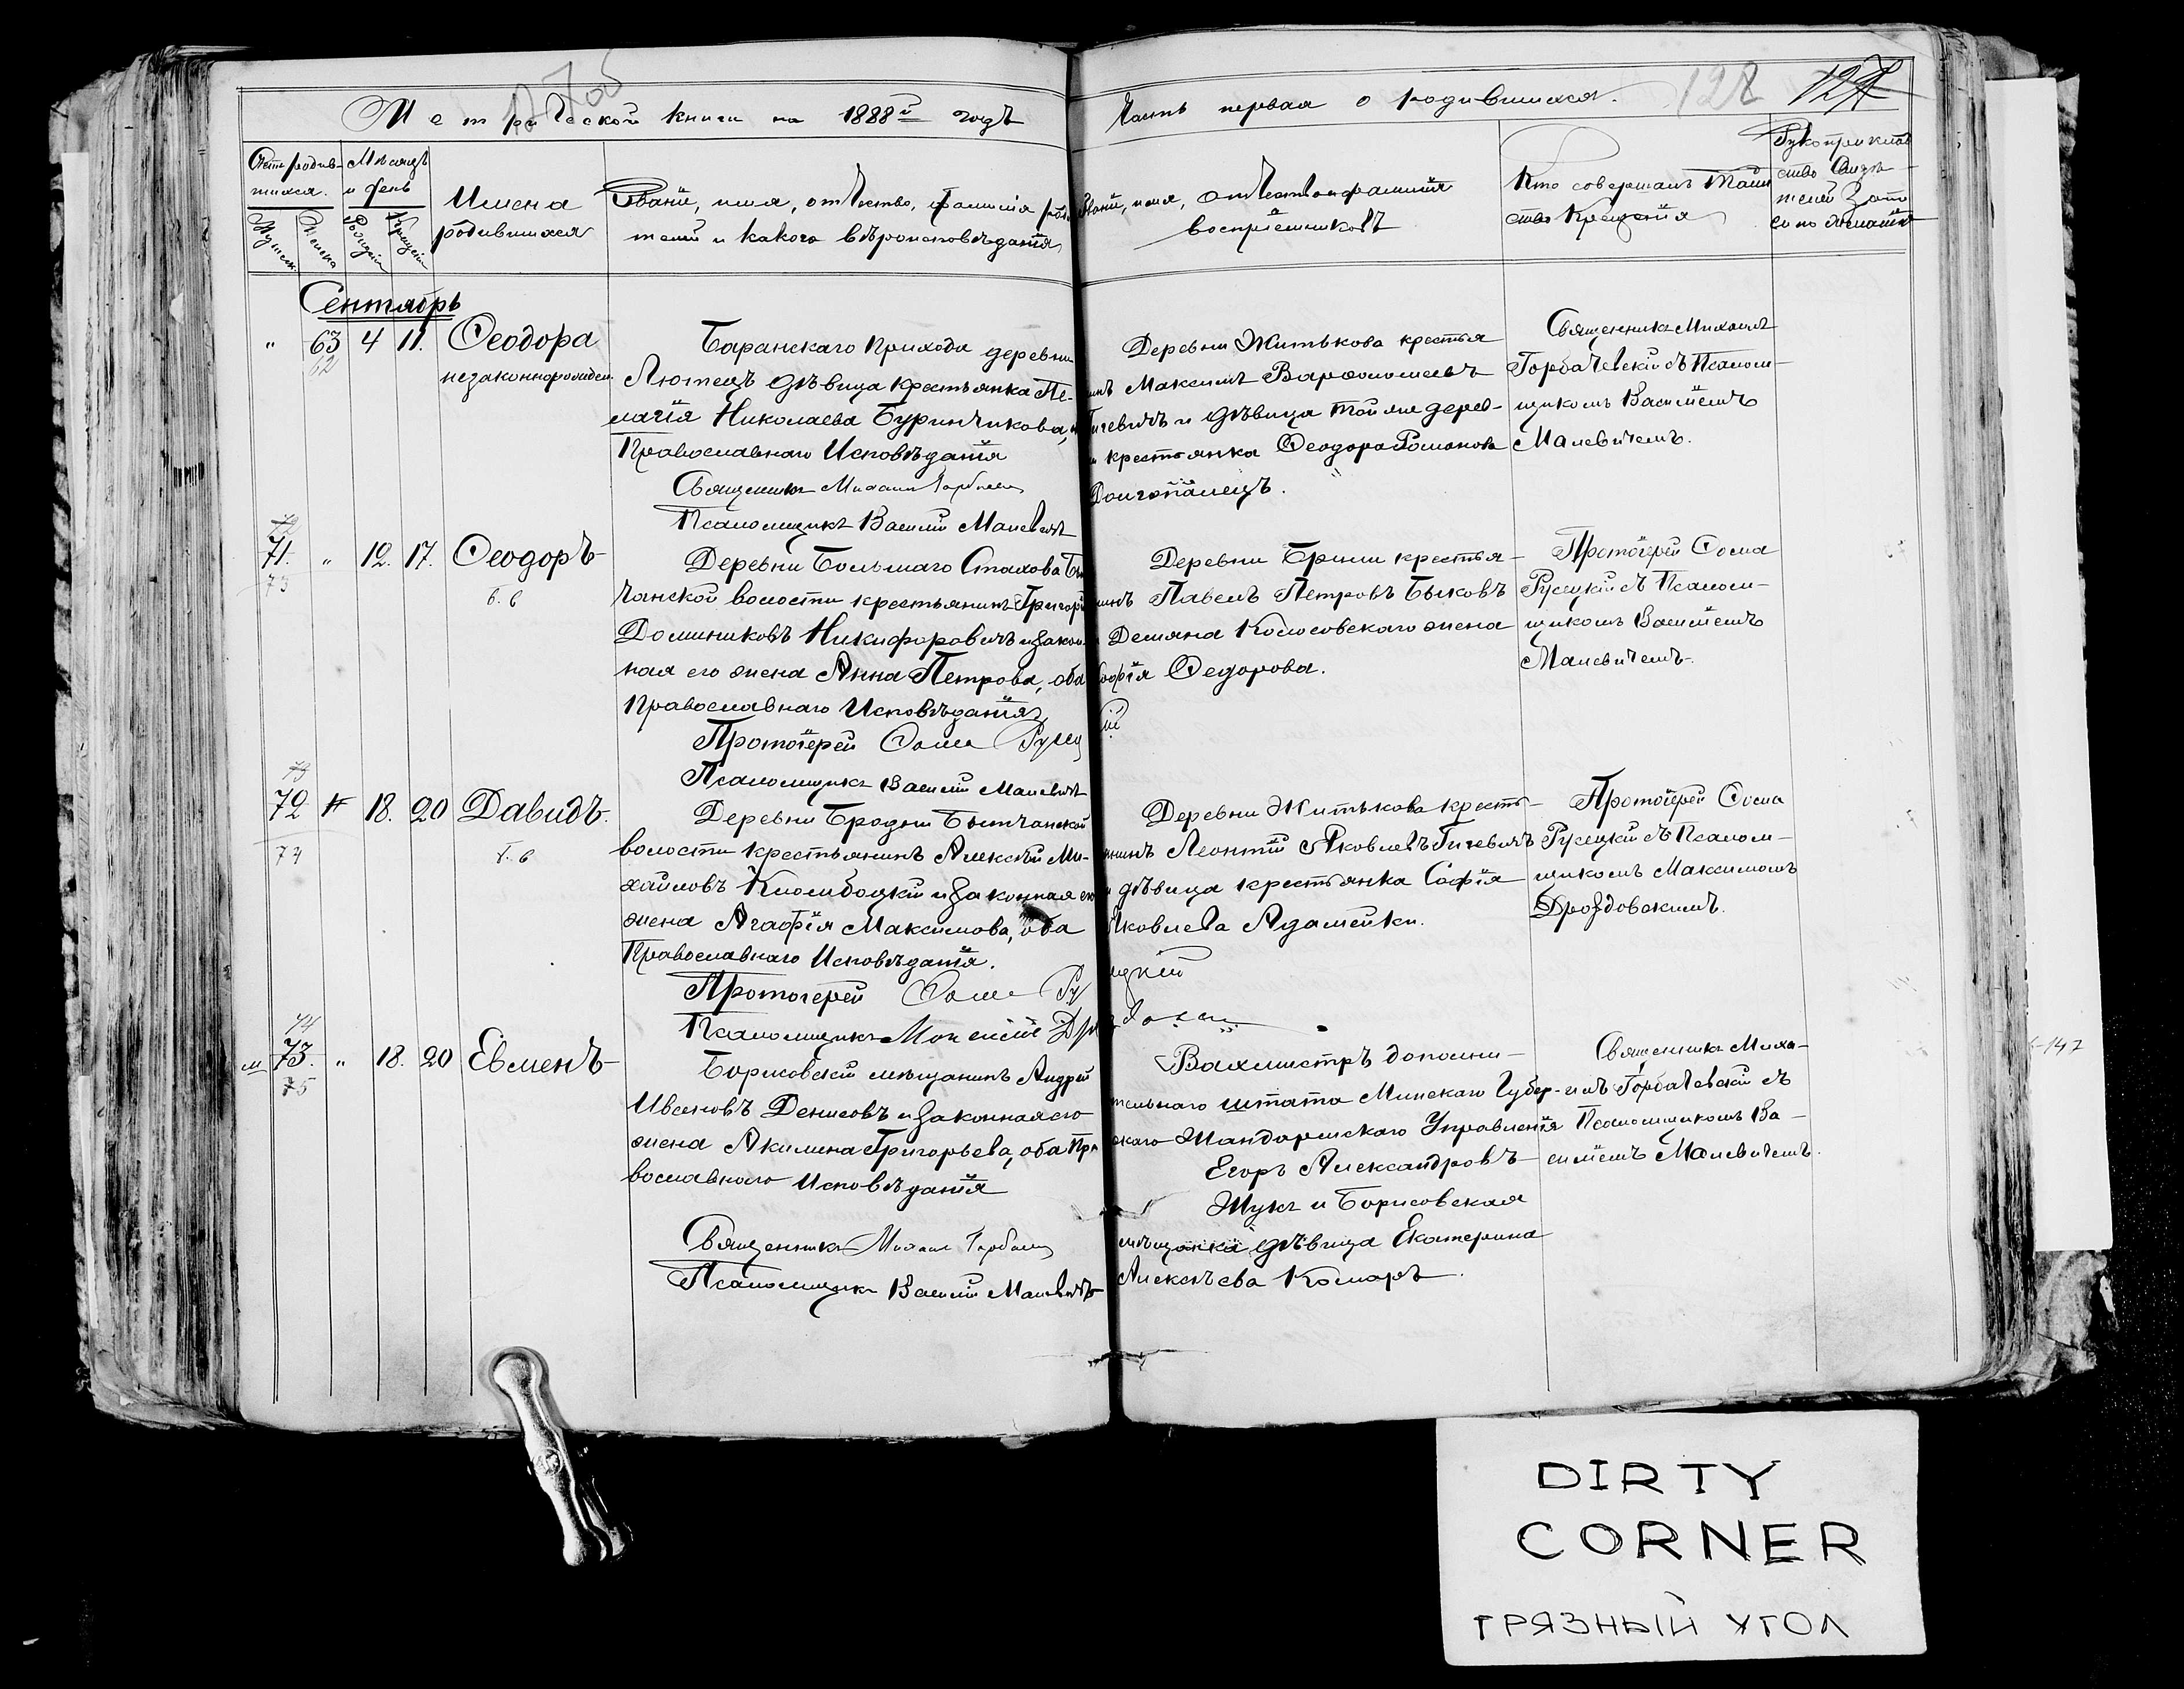 Метрической книги на 1888й годъ
Часть первая о родившихся.
128
127
Счетъ родив-
шихся.
Мѣсяцъ
и день
Имена
родившихся
Мужеск.
Женска
Рожденія
Крещенія
Званіе, имя, отчество, фамилія роди
телей и какого вѣроисповѣданія
Званіе, имя, отчество и фамилія
воспріемниковъ
Кто совершалъ таин
ство Крещенія
Рукоприклад
ство свидѣ-
телей запи
си по желанію
Сентябрь
" 63 4 11. Ѳеодора
62
незаконнорожден.
Баранскаго прихода деревни
Лютецъ дѣвица крестьянка Пе-
лагія Николаева Буринчикова,
Православнаго Исповѣданія
Священникъ Михаилъ Горбачев
Псаломщикъ Василій Малевичъ
Деревни Житькова крестья
нинъ Максимъ Варѳоломеевъ
Гичевичъ и дѣвица той же дерев-
и крестьянка Ѳеодора Романова
Долгопалецъ.
Священникъ Михаилъ
Горбачевскій съ Псалом-
щикомъ Василіемъ
Малевичемъ.
72
71. " 12. 17. Ѳеодоръ
73
в. в
Деревни Большаго Стахова Бы
чанской волости крестьянинъ Григорій
Доминиковъ Никифоровичъ и закон-
ная его жена Анна Петрова, оба
Православнаго Исповѣданія
Протоіерей Ѳома Русец
кій
Псаломщикъ Василій Малевичъ
Деревни Брили крестья-
нинъ Павелъ Петровъ Быковъ
Демяна Колосовскаго жена
Софія Ѳедорова.
Протоіерей Ѳома
Русецкій съ Псалом-
щикомъ Василіемъ
Малевичемъ.
73
72 " 18. 20 Давидъ.
74
Деревни Бродни Бытчанской
волости крестьянинъ Алексѣй Ми-
хайловъ Клюмбоцкій и законная его
жена Агафія Максимова, оба
Православнаго Исповѣданія.
Протоіерей Ѳома Ру
сецкій
Деревни Житькова кресть-
янинъ Леонтій Яковлевъ Гичевичъ
и дѣвица крестьянка Софія
Яковлева Адамейки.
Протоіерей Ѳома
Русецкій съ Псалом-
щикомъ Максимомъ
Дроздовскимъ.
74
73. " 18. 20 Евменъ
75
Борисовскій мѣщанинъ Андрей
Ивановъ Денисовъ и законная его
жена Акилина Григорьева, оба Пра
вославнаго Исповѣданія
Священникъ Михаилъ Горбачев
Псаломщикъ Василій Малевичъ
Вахмистръ дополни-
тельнаго штата Минскаго Губер-
нскаго Жандармскаго Управленія
Егоръ Александровъ
Жукъ и Борисовская
мѣщанка дѣвица Екатерина
Алексѣева Комаръ.
Священникъ Миха-
илъ Горбачевскій съ
Псаломщикомъ Ва-
силіемъ Малевичемъ.
DIRTY
CORNER
ГРЯЗНЫЙ УГОЛ